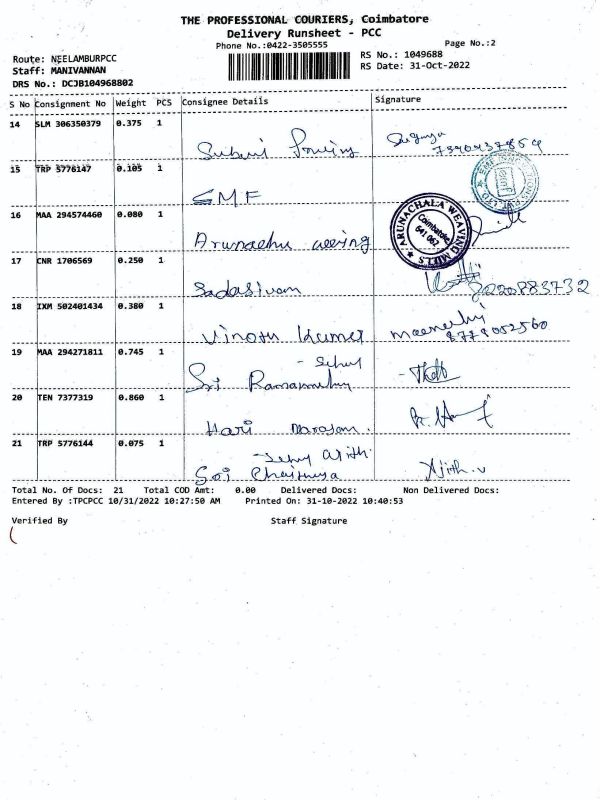 THE PROFESSIONAL COURIERS, Coimbatore
Delivery Runsheet - PCC
Phone No.:0422-3505555
Page No.:2
Route: NEELAMBURPCC
RS No.: 1049688
Staff: MANIVANNAN
RS Date: 31-Oct-2022
DRS No.: DCJB104968802
S No Consignment No Weight PCS Consignee Details Signature
14 SLM 306350379 0.375 1
15 TRP 5776147 0.105 1
SMF
16 MAA 294574460 0.080 1
ARUNACHALA WEAVING MILLS
Coimbatore
641 062
17 CNR 1706569 0.250 1
Sadasivam
18 IXM 502401434 0.380 1
Vinoth Kumar
8778052560
19 MAA 294271811 0.745 1
Sri
20 TEN 7377319 0.860 1
Hari
21 TRP 5776144 0.075 1
Sri Ajith.v
Total No. Of Docs: 21 Total COD Amt: 0.00 Delivered Docs: Non Delivered Docs:
Entered By :TPCPCC 10/31/2022 10:27:50 AM Printed On: 31-10-2022 10:40:53
Verified By Staff Signature